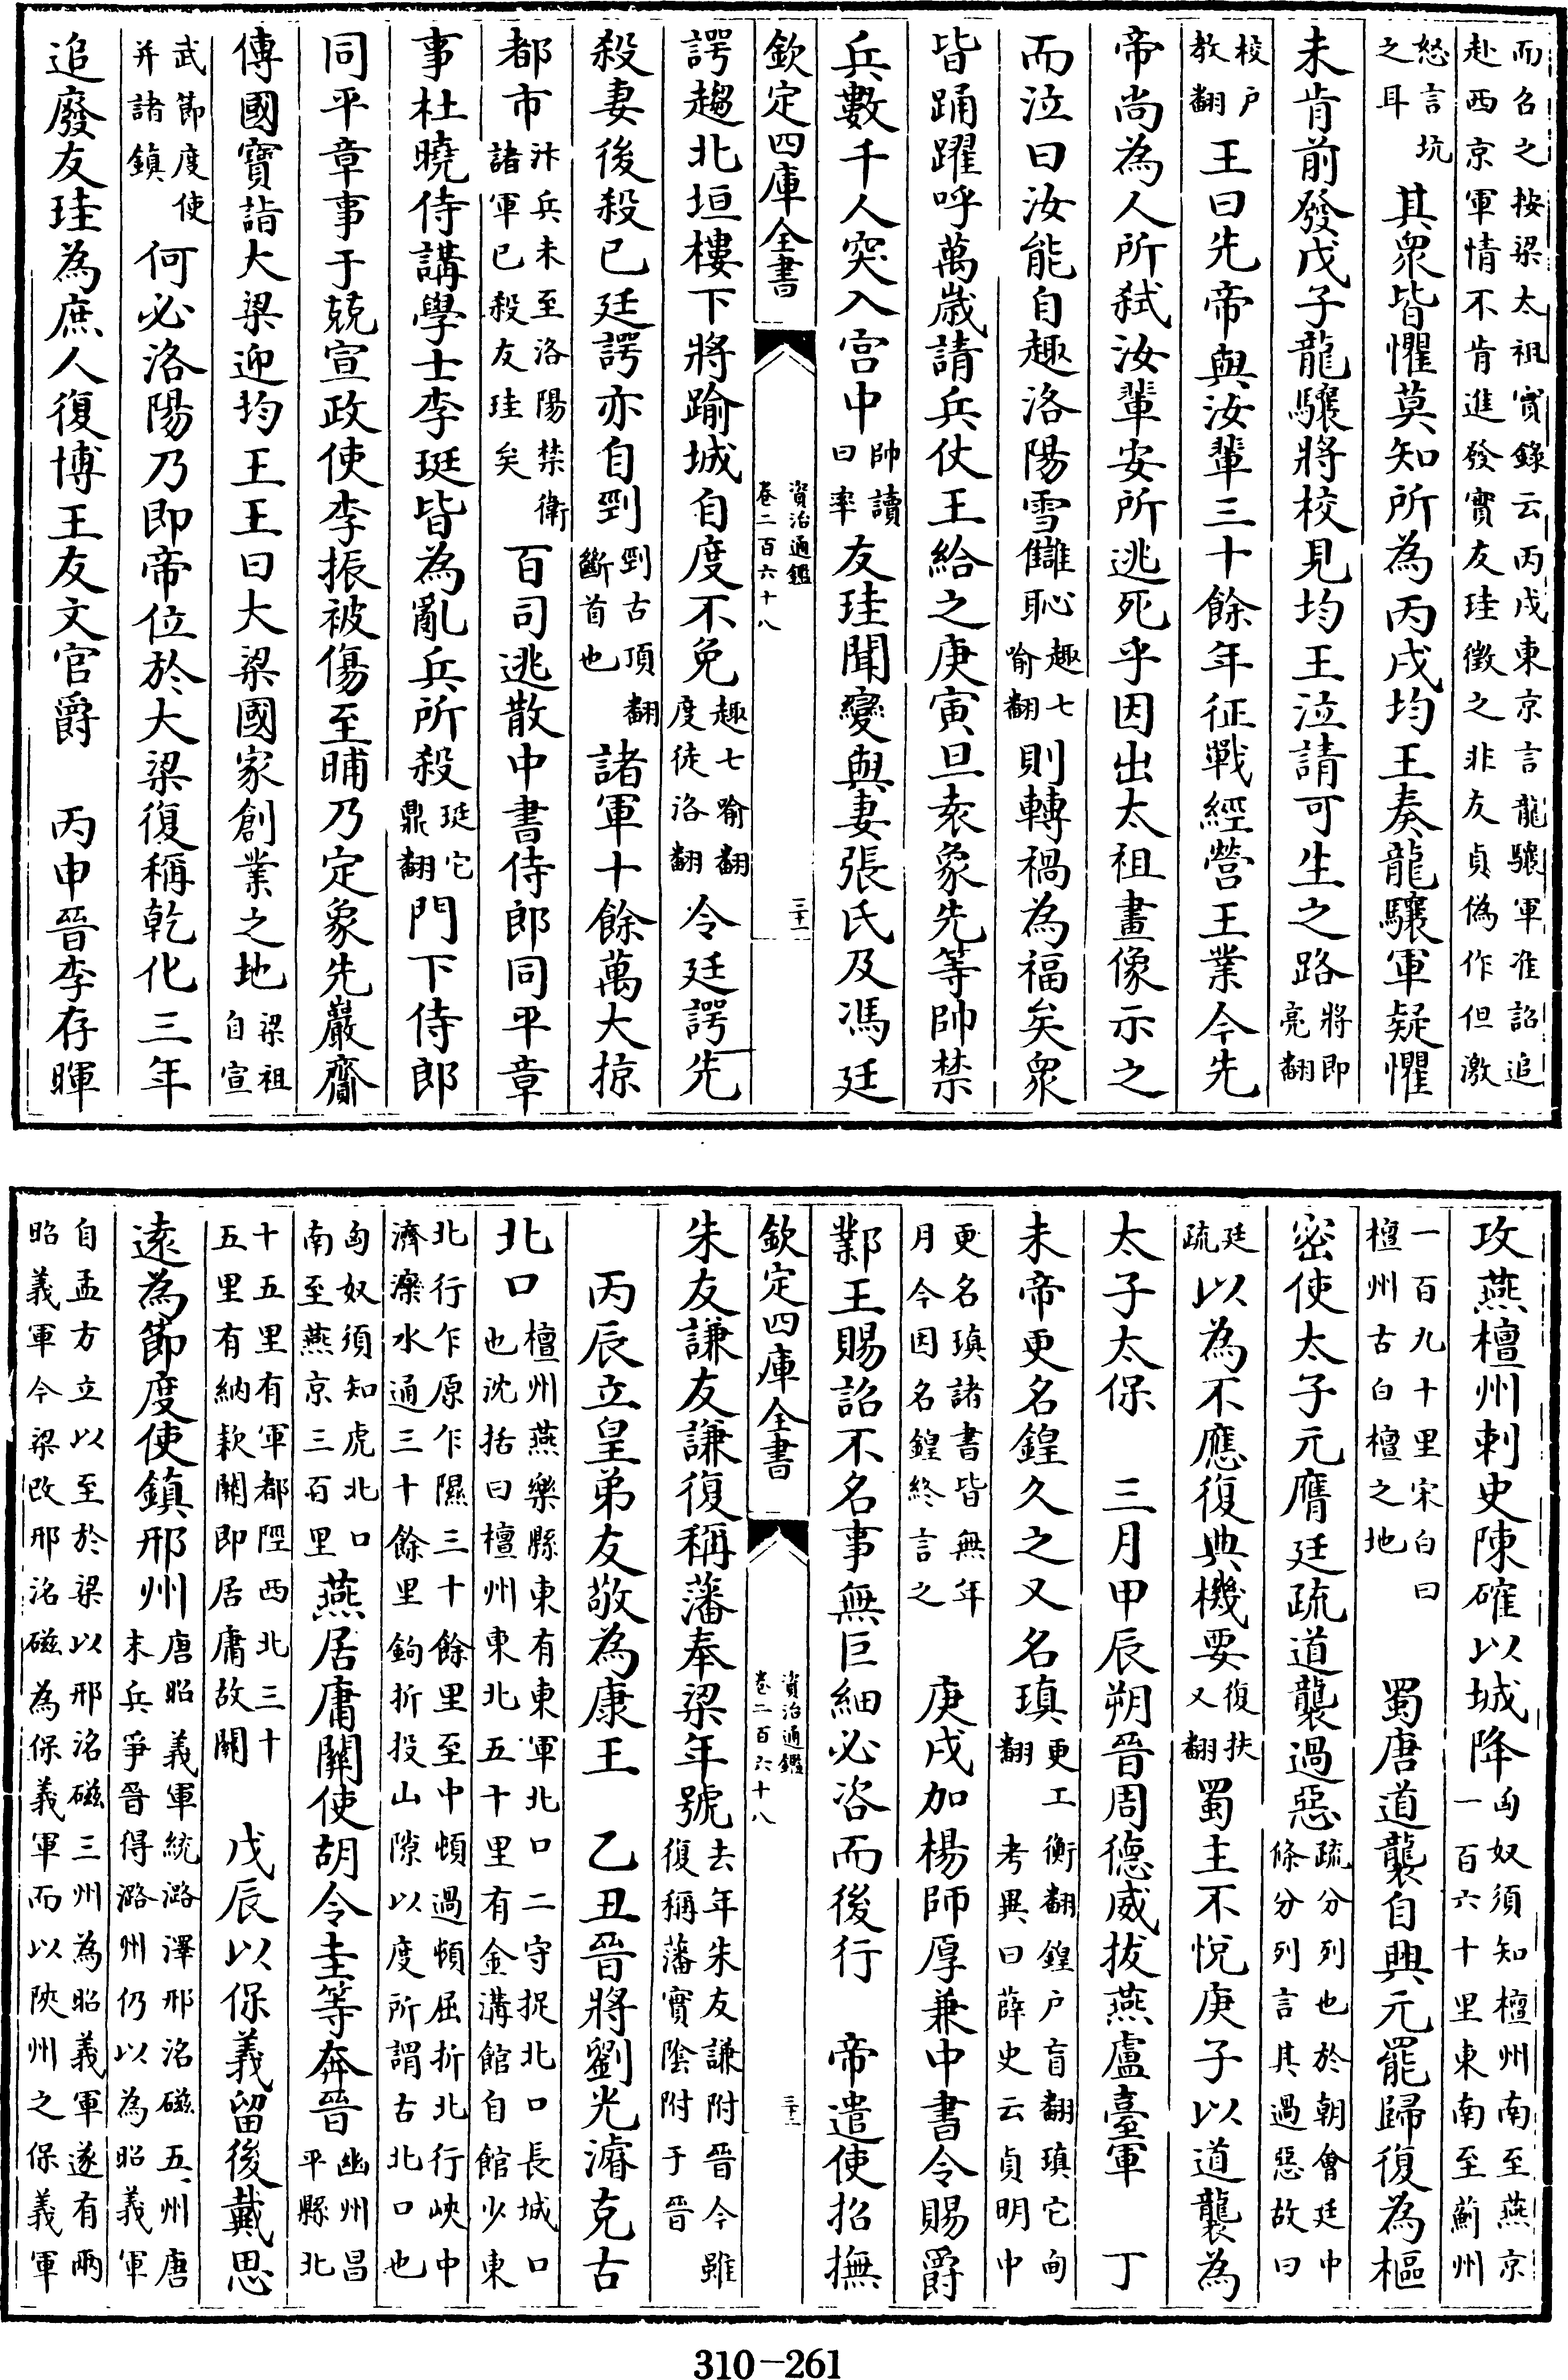 而召之按梁太祖實錄云丙戌東京言龍驤軍准詔追
赴西京軍情不肯進發實友珪徵之非友貞偽作但激
怒言坑之耳　其衆皆懼莫知所為丙戌均王奏龍驤軍疑懼
未肯前發戊子龍驤將校見均王泣請可生之路將即亮翻
校户教翻王曰先帝與汝輩三十餘年征戰經營王業今先
帝尚為人所弑汝輩安所逃死乎因出太祖畫像示之
而泣曰汝能自趣洛陽雪讎恥趣七喻翻則轉禍為福矣衆
皆踊躍呼萬歳請兵仗王給之庚寅旦袁象先等帥禁
兵數千人突入宫中帥讀曰率友珪聞變與妻張氏及馮廷
欽定四庫全書　資治通鑑卷二百六十八　三十一
諤趨北垣樓下將踰城自度不免趣七喻翻度徒洛翻令廷諤先
殺妻後殺已廷諤亦自剄剄古頂翻斷首也諸軍十餘萬大掠
都市汴兵未至洛陽禁衛諸軍已殺友珪矣百司逃散中書侍郎同平章
事杜曉侍講學士李珽皆為亂兵所殺珽它鼎翻門下侍郎
同平章事于兢宣政使李振被傷至晡乃定象先巖齎
傳國寶詣大梁迎均王王曰大梁國家創業之地梁祖自宣
武節度使并諸鎮何必洛陽乃即帝位於大梁復稱乾化三年
追廢友珪為庶人復博王友文官爵　丙申晉李存暉
攻燕檀州刺史陳確以城降匈奴須知檀州南至燕京一百六十里東南至薊州
一百九十里宋白曰檀州古白檀之地　蜀唐道襲自興元罷歸復為樞
密使太子元膺廷疏道襲過惡疏分列也於朝會廷中條分列言其過惡故曰
廷疏以為不應復典機要復扶又翻蜀主不悅庚子以道襲為
太子太保　三月甲辰朔晉周德威拔燕盧臺軍　丁
未帝更名鍠久之又名瑱更工衡翻鍠户盲翻瑱它甸翻考異曰薛史云貞明中
更名瑱諸書皆無年月今因名鍠終言之　庚戌加楊師厚兼中書令賜爵
鄴王賜詔不名事無巨細必咨而後行　帝遣使招撫
欽定四庫全書　資治通鑑卷二百六十八　三十二
朱友謙友謙復稱藩奉梁年號去年朱友謙附晉今雖復稱藩實陰附于晉
丙辰立皇弟友敬為康王　乙丑晉將劉光濬克古
北口檀州燕樂縣東有東軍北口二守捉北口長城口也沈括曰檀州東北五十里有金溝館自館少東
北行乍原乍隰三十餘里至中頓過頓屈折北行峽中濟灤水通三十餘里鉤折投山隙以度所謂古北口也
匈奴須知虎北口南至燕京三百里燕居庸關使胡令圭等奔晉幽州昌平縣北
十五里有軍都陘西北三十五里有納款關即居庸故關　戊辰以保義留後戴思
遠為節度使鎮邢州唐昭義軍統潞澤邢洺磁五州唐末兵爭晉得潞州仍以為昭義軍
自孟方立以至於梁以邢洺磁三州為昭義軍遂有兩
昭義軍今梁改邢洺磁為保義軍而以陝州之保義軍
310-261